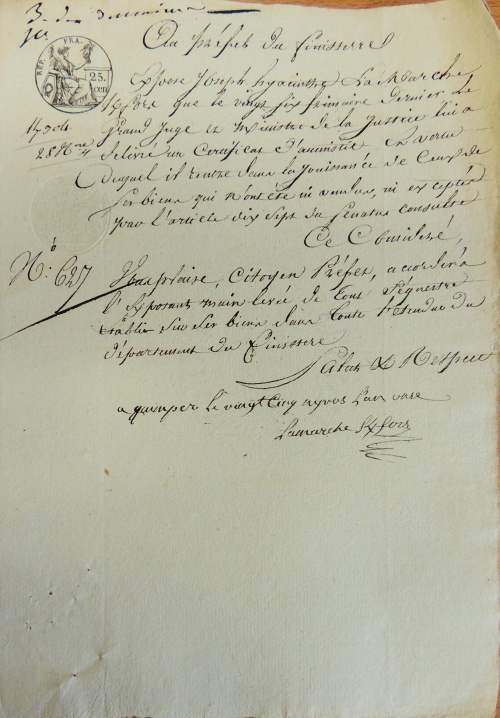 3. de
Au préfet du finisterre
REP. FRA.
25. cen
Expose Joseph hyacinthe La Marche
que le vingt six frimaire dernier Le
Grand Juge et Ministre de la Justice lui a
délivré un Certificat d'amnistie En vertu
Duquel il rentre dans la Jouissance de Ceux de
Ses biens qui n'ont été ni vendus, ni exceptés
par l'article dix Sept du Senatus consulte
Ce Considéré,
No: 627
Il vous plaise, Citoyen Préfet, accorder à
l'Exposant main levée de tout Séquestre
établi Sur Ses biens dans toute l'etendue du
département du finistere
Salut & Respect
a quimper le vingt Cinq nivos l'an onse
Lamarche